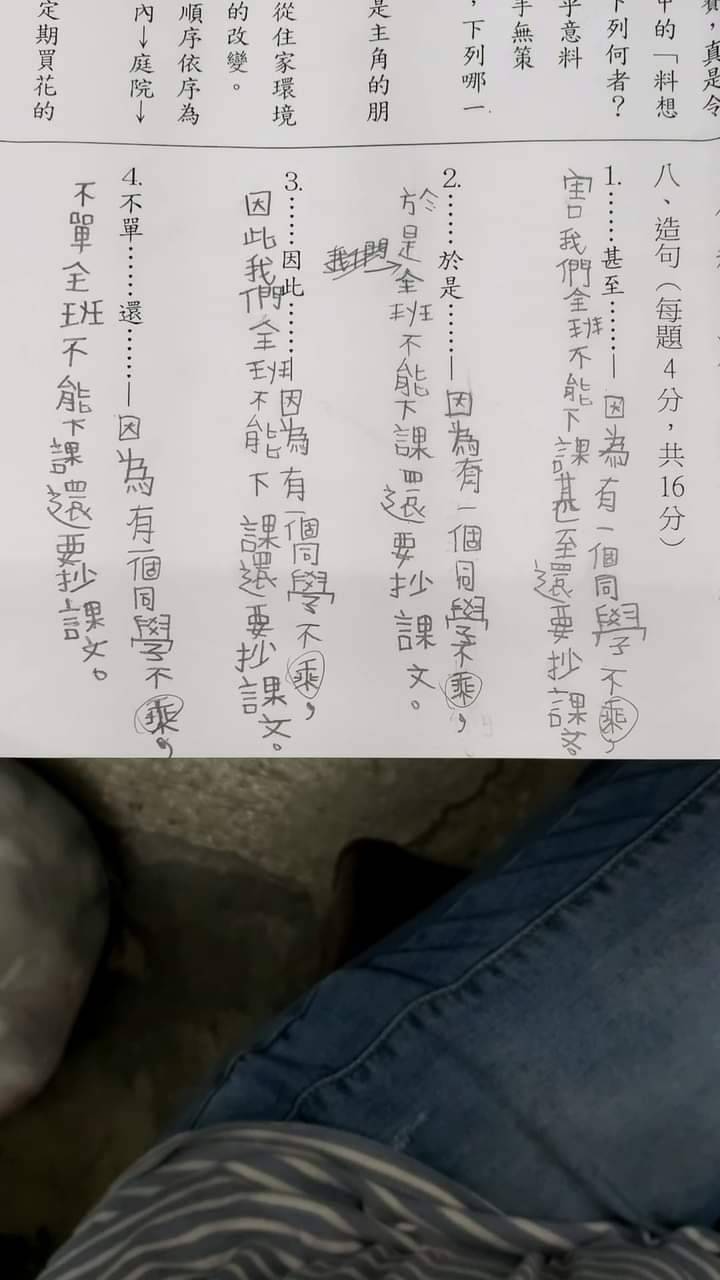 ，真是令
中的「料想
下列何者？
乎意料
手無策
，下列哪一
是主角的朋
從住家環境
的改變。
順序依序為
內→庭院→
定期買花的
八、造句（每題4分，共16分）
1.……甚至……—因為有一個同學不乘，
害我們全班不能下課甚至還要抄課文。
2.……於是……—因為有一個同學不乘，
於是全班不能下課還要抄課文。
我們
3.……因此……—因為有一個同學不乘，
因此我們全班不能下課還要抄課文。
4.不單……還……—因為有一個同學不乘，
不單全班不能下課還要抄課文。